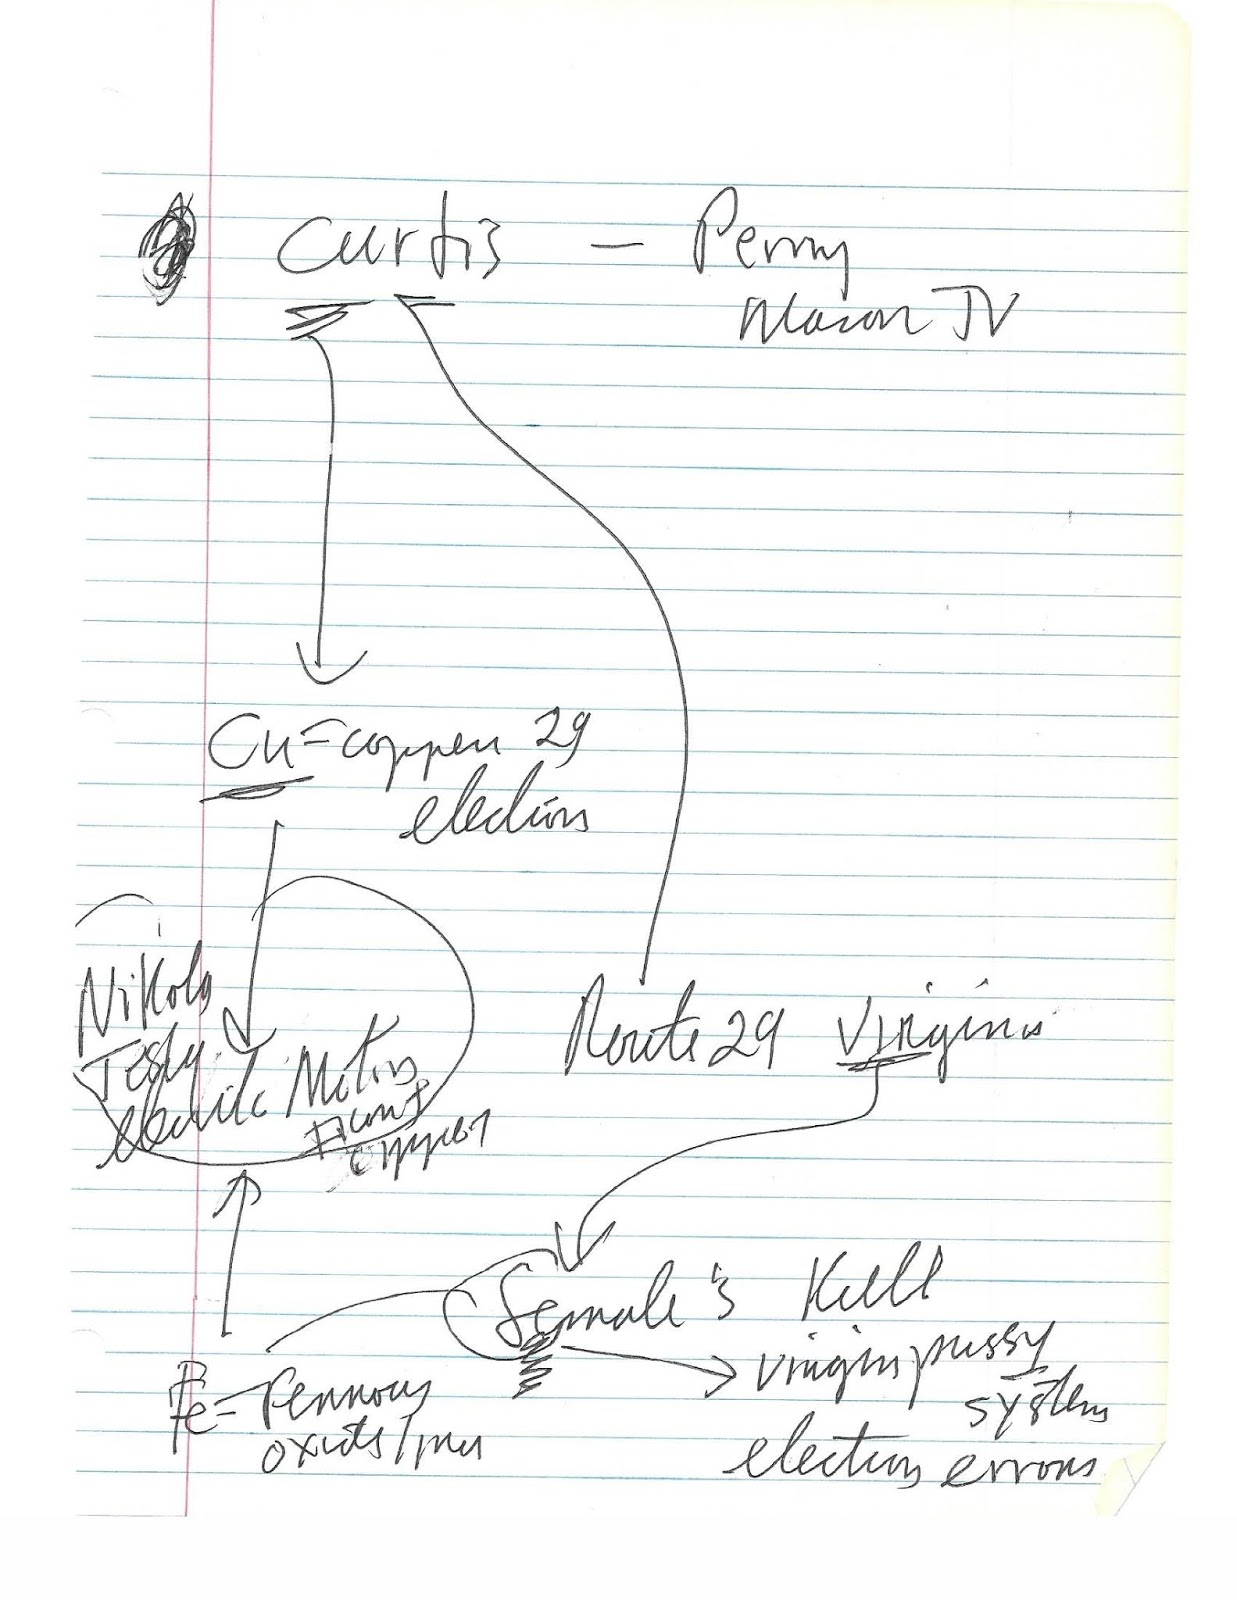 Curtis — Perry
Mason TV
Cu = copper 29
elections
Nikola
Tesla
electric Motors
iron +
copper
Route 29 Virginia
Female's Kill
virgin pussy
system
election errors
Fe = Ferrous
oxides / iron